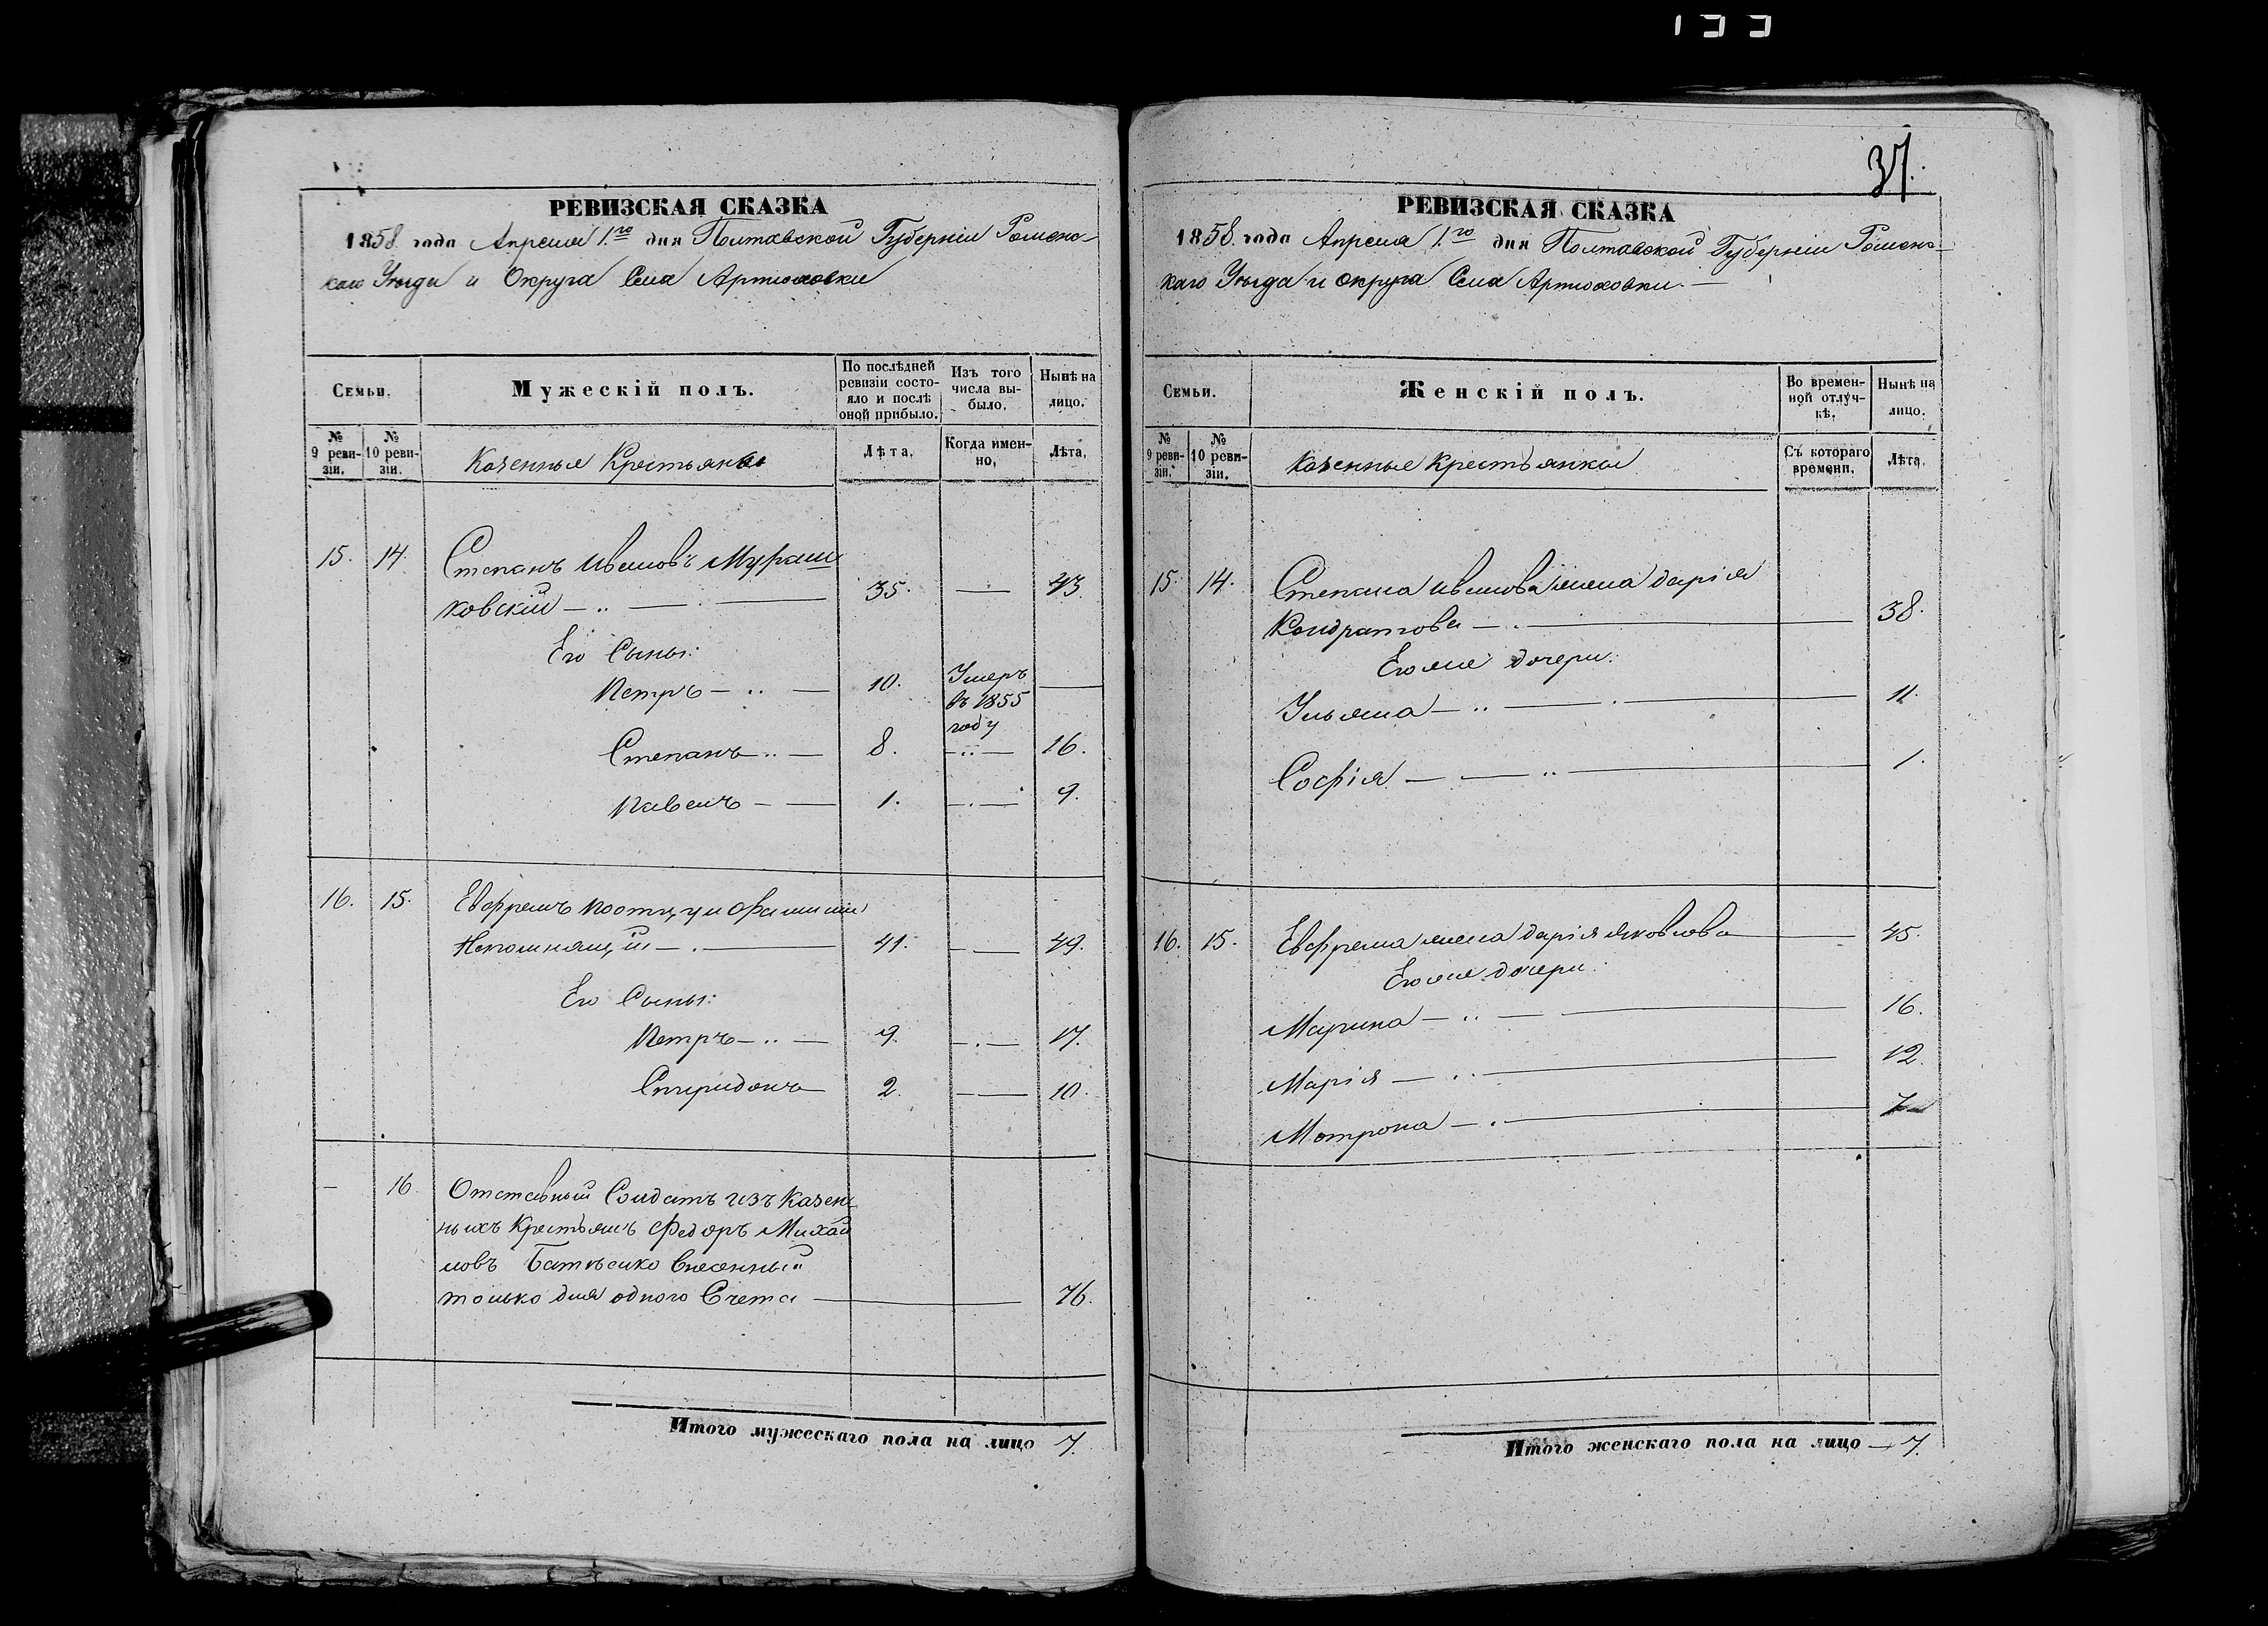 133
РЕВИЗСКАЯ СКАЗКА
1858 года Апреля 1.го дня Полтавской Губерніи Роменс-
каго Уезда и Округа Села Артюховки
Семьи.
Мужескій полъ.
По послѣдней ревизіи состо-
яло и послѣ оной прибыло.
Изъ того числа вы-
было.
Нынѣ на лицо.
№ 9 реви-
зіи.
№ 10 реви-
зіи.
Казенные Крестьяне
Лѣта.
Когда имен-
но.
Лѣта.
15. 14. Степанъ Ивановъ Мураш
ковскій 35. 43.
Его Сыны:
Петръ 10. Умеръ
въ 1855
году
Степанъ 8. 16.
Павелъ 1. 9.
16. 15. Евфремъ по отцу и фамиліи
Непомнящій 41. 49.
Его Сыны:
Петръ 9. 17.
Спиридонъ 2. 10.
16 Отставный Солдатъ изъ Казен
ныхъ Крестьянъ Федоръ Михай
ловъ внесенный
только для одного Счета 76.
Итого мужескаго пола на лицо 7.
37.
РЕВИЗСКАЯ СКАЗКА
1858. года Апреля 1.го дня Полтавской Губерніи Роменс-
каго Уезда и округа Села Артюховки.
Семьи.
Женскій полъ.
Во времен-
ной отлуч-
кѣ.
Нынѣ на лицо.
№ 9 реви-
зіи.
№ 10 реви-
зіи.
Казенные крестьянки
Съ котораго времени.
Лѣта.
15. 14. Степана Иванова жена Дарія
Кондратова 38.
Его же дочери:
Ульяна 11
Софія 1.
16. 15. Евфрема жена Дарія Яковлева 45.
Его же дочери:
Марина 16.
Марія 12.
Мотрона 7
Итого женскаго пола на лицо 7.